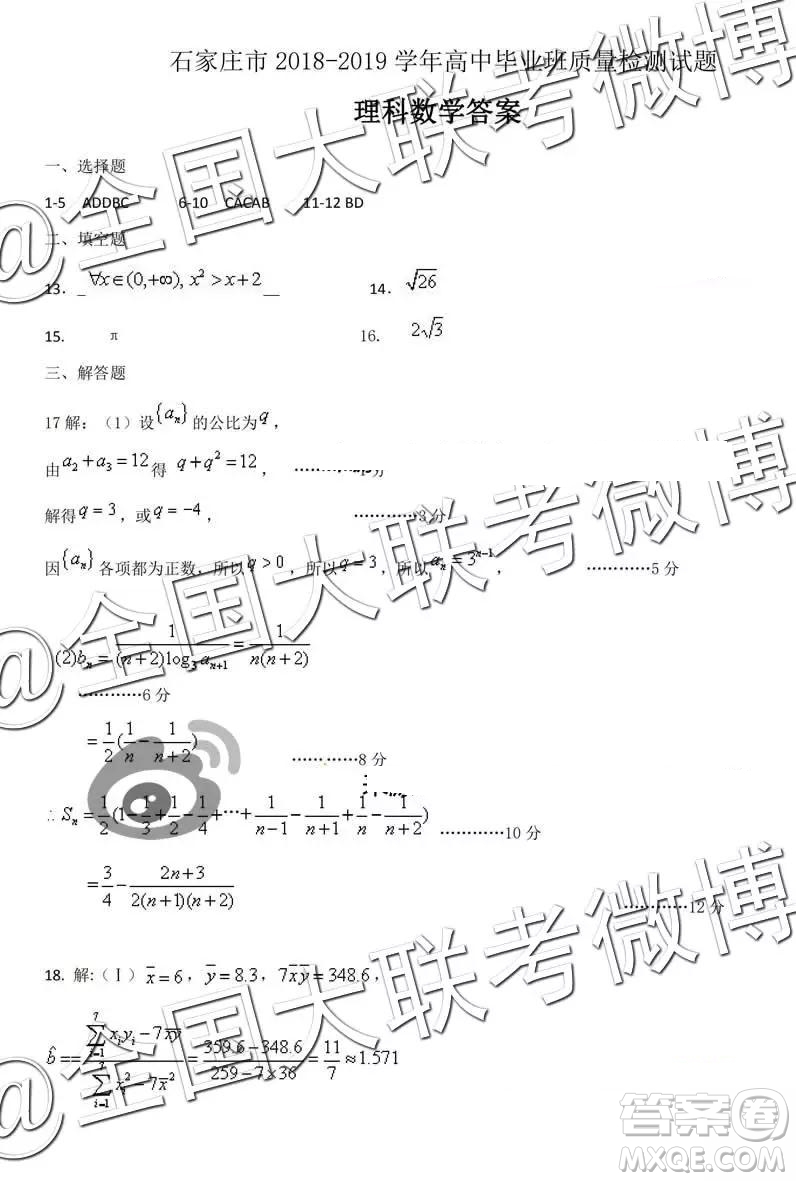 石家庄市 2018-2019 学年高中毕业班质量检测试题
理科数学答案
一、选择题
1-5 ADDBC 6-10 CACAB 11-12 BD
二、填空题
13. _∀x∈(0,+∞), x²>x+2__ 14. √26
15. π 16. 2√3
三、解答题
17 解：（1）设{aₙ}的公比为q，
由 a₂+a₃=12 得 q+q²=12，
解得 q=3，或 q=-4， …………3 分
因{aₙ}各项都为正数，所以 q>0，所以 q=3，所以 aₙ=3ⁿ⁻¹， …………5 分
(2)bₙ=1/((n+2)log₃aₙ₊₁)=1/(n(n+2))
…………6 分
=1/2(1/n-1/(n+2)) …………8 分
∴ Sₙ=1/2(1-1/3+1/2-1/4+…+1/(n-1)-1/(n+1)+1/n-1/(n+2)) …………10 分
=3/4-(2n+3)/(2(n+1)(n+2)) …………12 分
18. 解:（Ⅰ）x̄=6，ȳ=8.3，7x̄ȳ=348.6，
b̂==(∑ᵢ₌₁⁷xᵢyᵢ-7x̄ȳ)/(∑ᵢ₌₁⁷xᵢ²-7x̄²)=(359.6-348.6)/(259-7×36)=11/7≈1.571
@全国大联考微博
@全国大联考微博
@全国大联考微博
答案卷
MXQE.COM